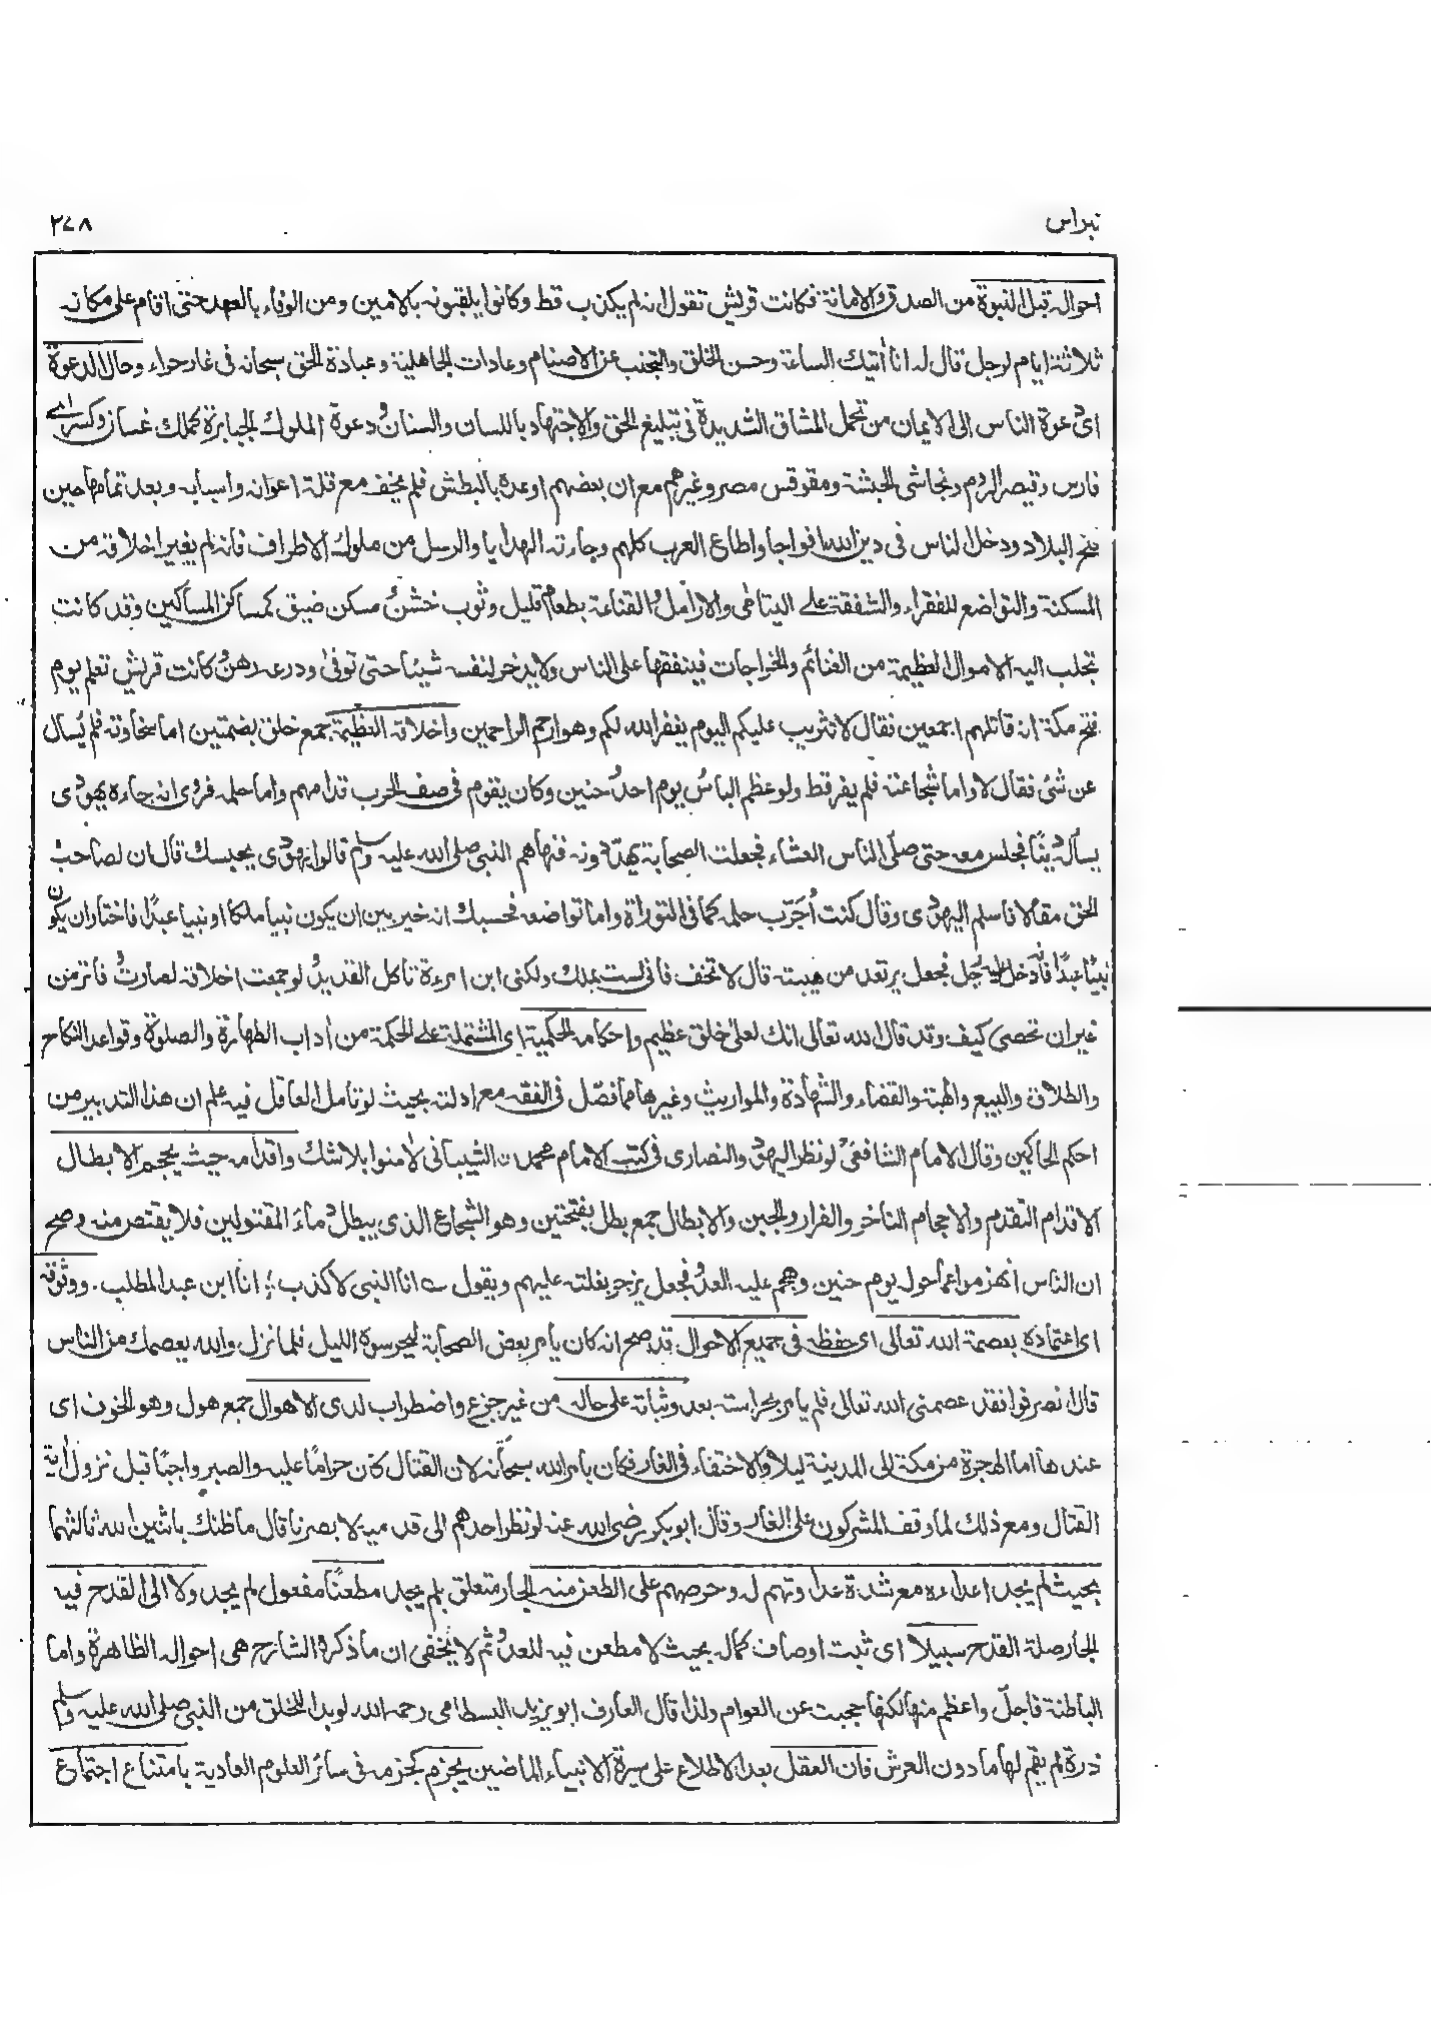 نبراس
٢٤٨
احواله قبل النبوة من الصدق والامانة فكانت قريش تقول انه لم يكذب قط وكانوا يلقبونه بالامين ومن الوفاء بالعهد حتى اقام على مكانه
ثلاثة ايام لرجل قال له انا أتيك الساعة وحسن الخلق والتجنب عن الاصنام وعادات الجاهلية وعبادة الحق سبحانه فى غار حراء وحال الدعوة
اى دعوة الناس الى الايمان من تحمل المشاق الشديدة فى تبليغ الحق والاجتهاد باللسان والسنان ودعوة الملوك الجبابرة كملك غسان وكسراى
فارس وقيصر الروم ونجاشى الحبشة ومقوقس مصر وغيرهم مع ان بعضهم اوعده بالبطش فلم يخف مع قلة اعوانه واسبابه وبعد تمامها حين
فتح البلاد ودخل الناس فى دين الله افواجا واطاع العرب كلهم وجاءته الهدايا والرسل من ملوك الاطراف فانه لم يغير اخلاقه من
المسكنة والتواضع للفقراء والشفقة على اليتامى والارامل والقناعة بطعام قليل وثوب خشن ومسكن ضيق كمساكن المساكين وقد كانت
تجلب اليه الاموال العظيمة من الغنائم والخراجات فينفقها على الناس ولا يدخر لنفسه شيئا حتى توفى ودرعه رهن وكانت قريش تعلم يوم
فتح مكة انه قاتلهم اجمعين فقال لا تثريب عليكم اليوم يغفر الله لكم وهو ارحم الراحمين واخلاقه العظيمة جمع خلق بضمتين اما سخاوته فلم يسال
عن شئ فقال لا واما شجاعته فلم يفر قط ولو عظم الباس يوم احد وحنين وكان يقوم فى صف الحرب قدامهم واما حلمه فروى انه جاءه يهودى
يسأله دينا فجلس معه حتى صلى الناس العشاء فجعلت الصحابة يهددونه فنهاهم النبى صلى الله عليه وسلم قالوا يهودى يحبسك قال ان لصاحب
الحق مقالا فاسلم اليهودى وقال كنت أجرب حلمه كما فى التوراة واما تواضعه فحسبك انه خير بين ان يكون نبيا ملكا او نبيا عبدا فاختار ان يكون
نبيا عبدا فانه دخل اليه رجل فجعل يرتعد من هيبته قال لا تخف فانى لست بملك ولكنى ابن امرءة تاكل القديد ولو جمعت اخلاقه لصارت دفاتر من
غير ان تحصى كيف وقد قال الله تعالى انك لعلى خلق عظيم واحكامه الحكمية اى المشتملة على الحكمة من أداب الطهارة والصلوة وقواعد النكاح
والطلاق والبيع والهبة والقضاء والشهادة والمواريث وغيرها مما فصل فى الفقه مع ادلته بحيث لو تامل العاقل فيه علم ان هذا التدبير من
احكم الحاكمين وقال الامام الشافعى لو نظر اليهود والنصارى فى كتب الامام محمد ن الشيبانى لأمنوا بلا شك واقدامه حيث يحجم الابطال
الاقدام التقدم والاحجام التاخر والفرار والجبن والابطال جمع بطل بفتحتين وهو الشجاع الذى يبطل دماء المقتولين فلا يقتص منه وصح
ان الناس انهزموا عما حوله يوم حنين وهجم عليه العدو فجعل يزجر بغلته عليهم ويقول انا النبى لا كذب ؛ انا ابن عبد المطلب . ووثوقه
اى اعتماده بعصمة الله تعالى اى حفظه فى جميع الاحوال قد صح انه كان يامر بعض الصحابة ليحرسوه الليل فلما نزل والله يعصمك من الناس
قال انصرفوا فقد عصمنى الله تعالى فلم يامر بحراسته بعد وثباته على حاله من غير جزع واضطراب لدى الاهوال جمع هول وهو الخوف اى
عندها اما الهجرة من مكة الى المدينة ليلا والاختفاء فى الغار فكان بامر الله سبحانه لان القتال كان حراما عليه والصبر واجبا قبل نزول أية
القتال ومع ذلك لما وقف المشركون على الغار وقال ابوبكر رضى الله عنه لو نظر احدهم الى قدميه لابصرنا قال ما ظنك باثنين الله ثالثهما
بحيث لم يجد اعداءه مع شدة عداوتهم له وحرصهم على الطعن منه الجار متعلق بلم يجد مطعنا مفعول لم يجد ولا الى القدح فيه
الجار صلة القدح سبيلا اى ثبت اوصاف كماله بحيث لا مطعن فيه للعدو ثم لا يخفى ان ما ذكره الشارح هى احواله الظاهرة واما
الباطنة فاجل واعظم منها لكنها حجبت عن العوام ولذا قال العارف ابو يزيد البسطامى رحمه الله لو بدا للخلق من النبى صلى الله عليه وسلم
ذرة لم يقم لها ما دون العرش فان العقل بعد الاطلاع على سيرة الانبياء الماضين يجزم كجزمه فى سائر العلوم العادية بامتناع اجتماع